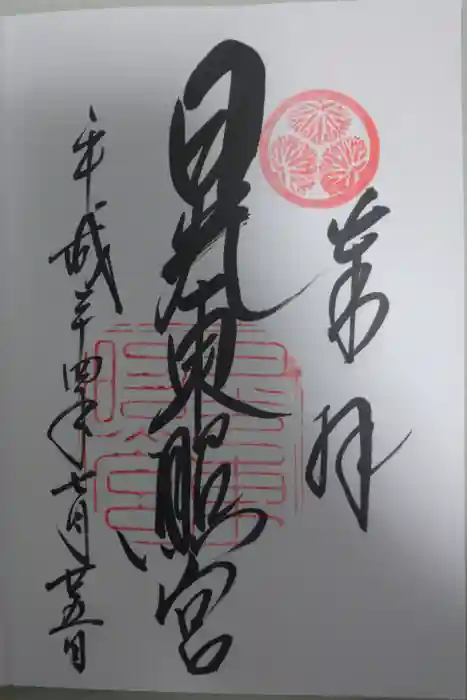 奉拝
日光東照宮
平成二十四年七月廿五日